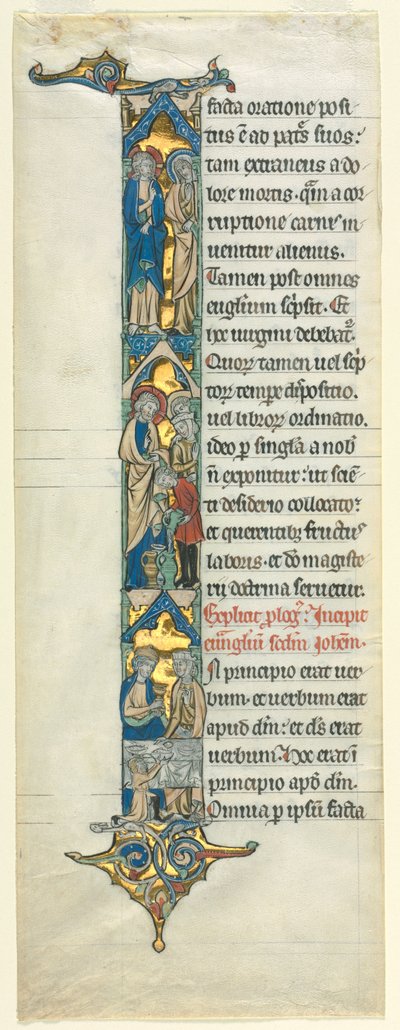 facta oratione posi
tus ē ad patͤs suos:
tam extraneus a do
lore mortis. qͣm a cor
ruptione carnis in
uenitur alienus.
Tamen post omnes
euglium scͥpsit. Et
hoc uirgini debebatͬ.
Quoꝝ tamen uel scͥp
toꝝ tempꝝ dispositio.
uel libroꝝ ordinatio.
ideo ꝑ singla a nob
n̄ exponitur: ut sciē
ti desiderio collocato:
et querentibꝫ fructus
laboris. et dō magiste
rij doctrina seruetur.
Explicit ꝓlogꝰ: Incipit
euāgliū scdm̄ Johēm.
N principio erat uer
bum. et uerbum erat
apud dm̄: et ds̄ erat
uerbum. Hoc erat ī
principio apd̓ dm̄.
Omnia ꝑ ipsū facta